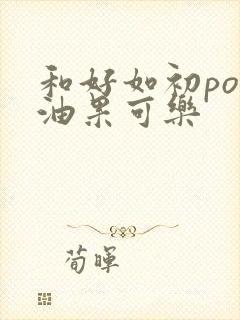 和好如初po
油果可樂
荀暉